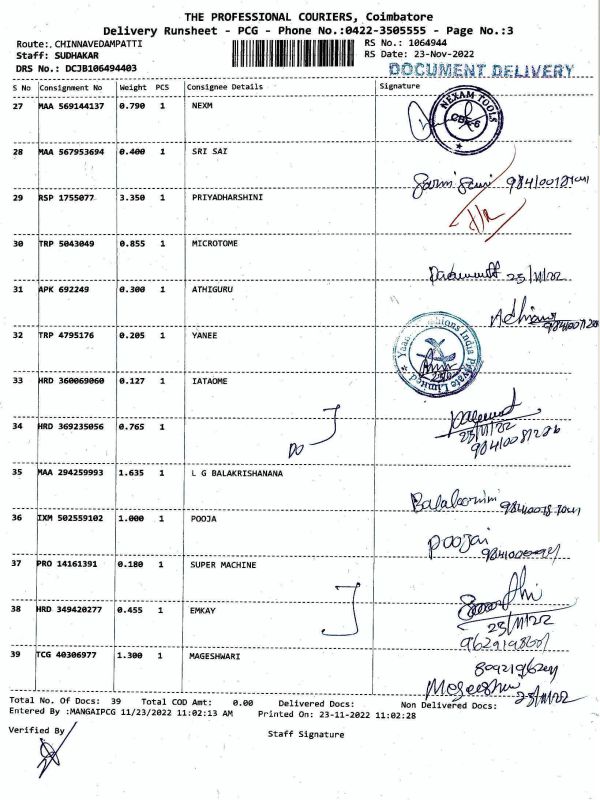 THE PROFESSIONAL COURIERS, Coimbatore
Delivery Runsheet - PCG - Phone No.:0422-3505555 - Page No.:3
Route:.CHINNAVEDAMPATTI RS No.: 1064944
Staff: SUDHAKAR RS Date: 23-Nov-2022
DRS No.: DCJB106494403 DOCUMENT DELIVERY
S No Consignment No Weight PCS Consignee Details Signature
27 MAA 569144137 0.790 1 NEXM
NEXAM TOOLS CBE-6
28 MAA 567953694 0.400 1 SRI SAI
29 RSP 1755077 3.350 1 PRIYADHARSHINI
30 TRP 5043049 0.855 1 MICROTOME
23/11/22
31 APK 692249 0.300 1 ATHIGURU
32 TRP 4795176 0.205 1 YANEE
Fashions India Private Limited
33 HRD 360069060 0.127 1 IATAOME
34 HRD 369235056 0.765 1
DO
23/11/22
35 MAA 294259993 1.635 1 L G BALAKRISHANANA
36 IXM 502559102 1.000 1 POOJA
Poojai
37 PRO 14161391 0.180 1 SUPER MACHINE
38 HRD 349420277 0.455 1 EMKAY
23/11/22
39 TCG 40306977 1.300 1 MAGESHWARI
23/11/22
Total No. Of Docs: 39 Total COD Amt: 0.00 Delivered Docs: Non Delivered Docs:
Entered By :MANGAIPCG 11/23/2022 11:02:13 AM Printed On: 23-11-2022 11:02:28
Verified By Staff Signature